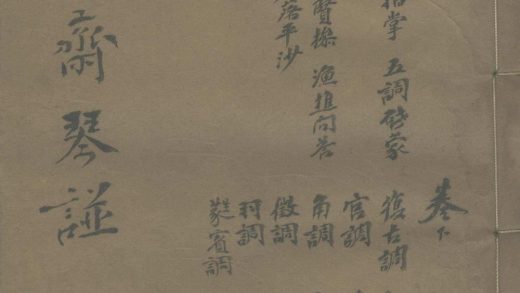 指掌 五調啓蒙
賢操 漁樵問答
落平沙
卷下
復古調
宮調
角調
徵調
羽調
蕤賓調
齋琴諩